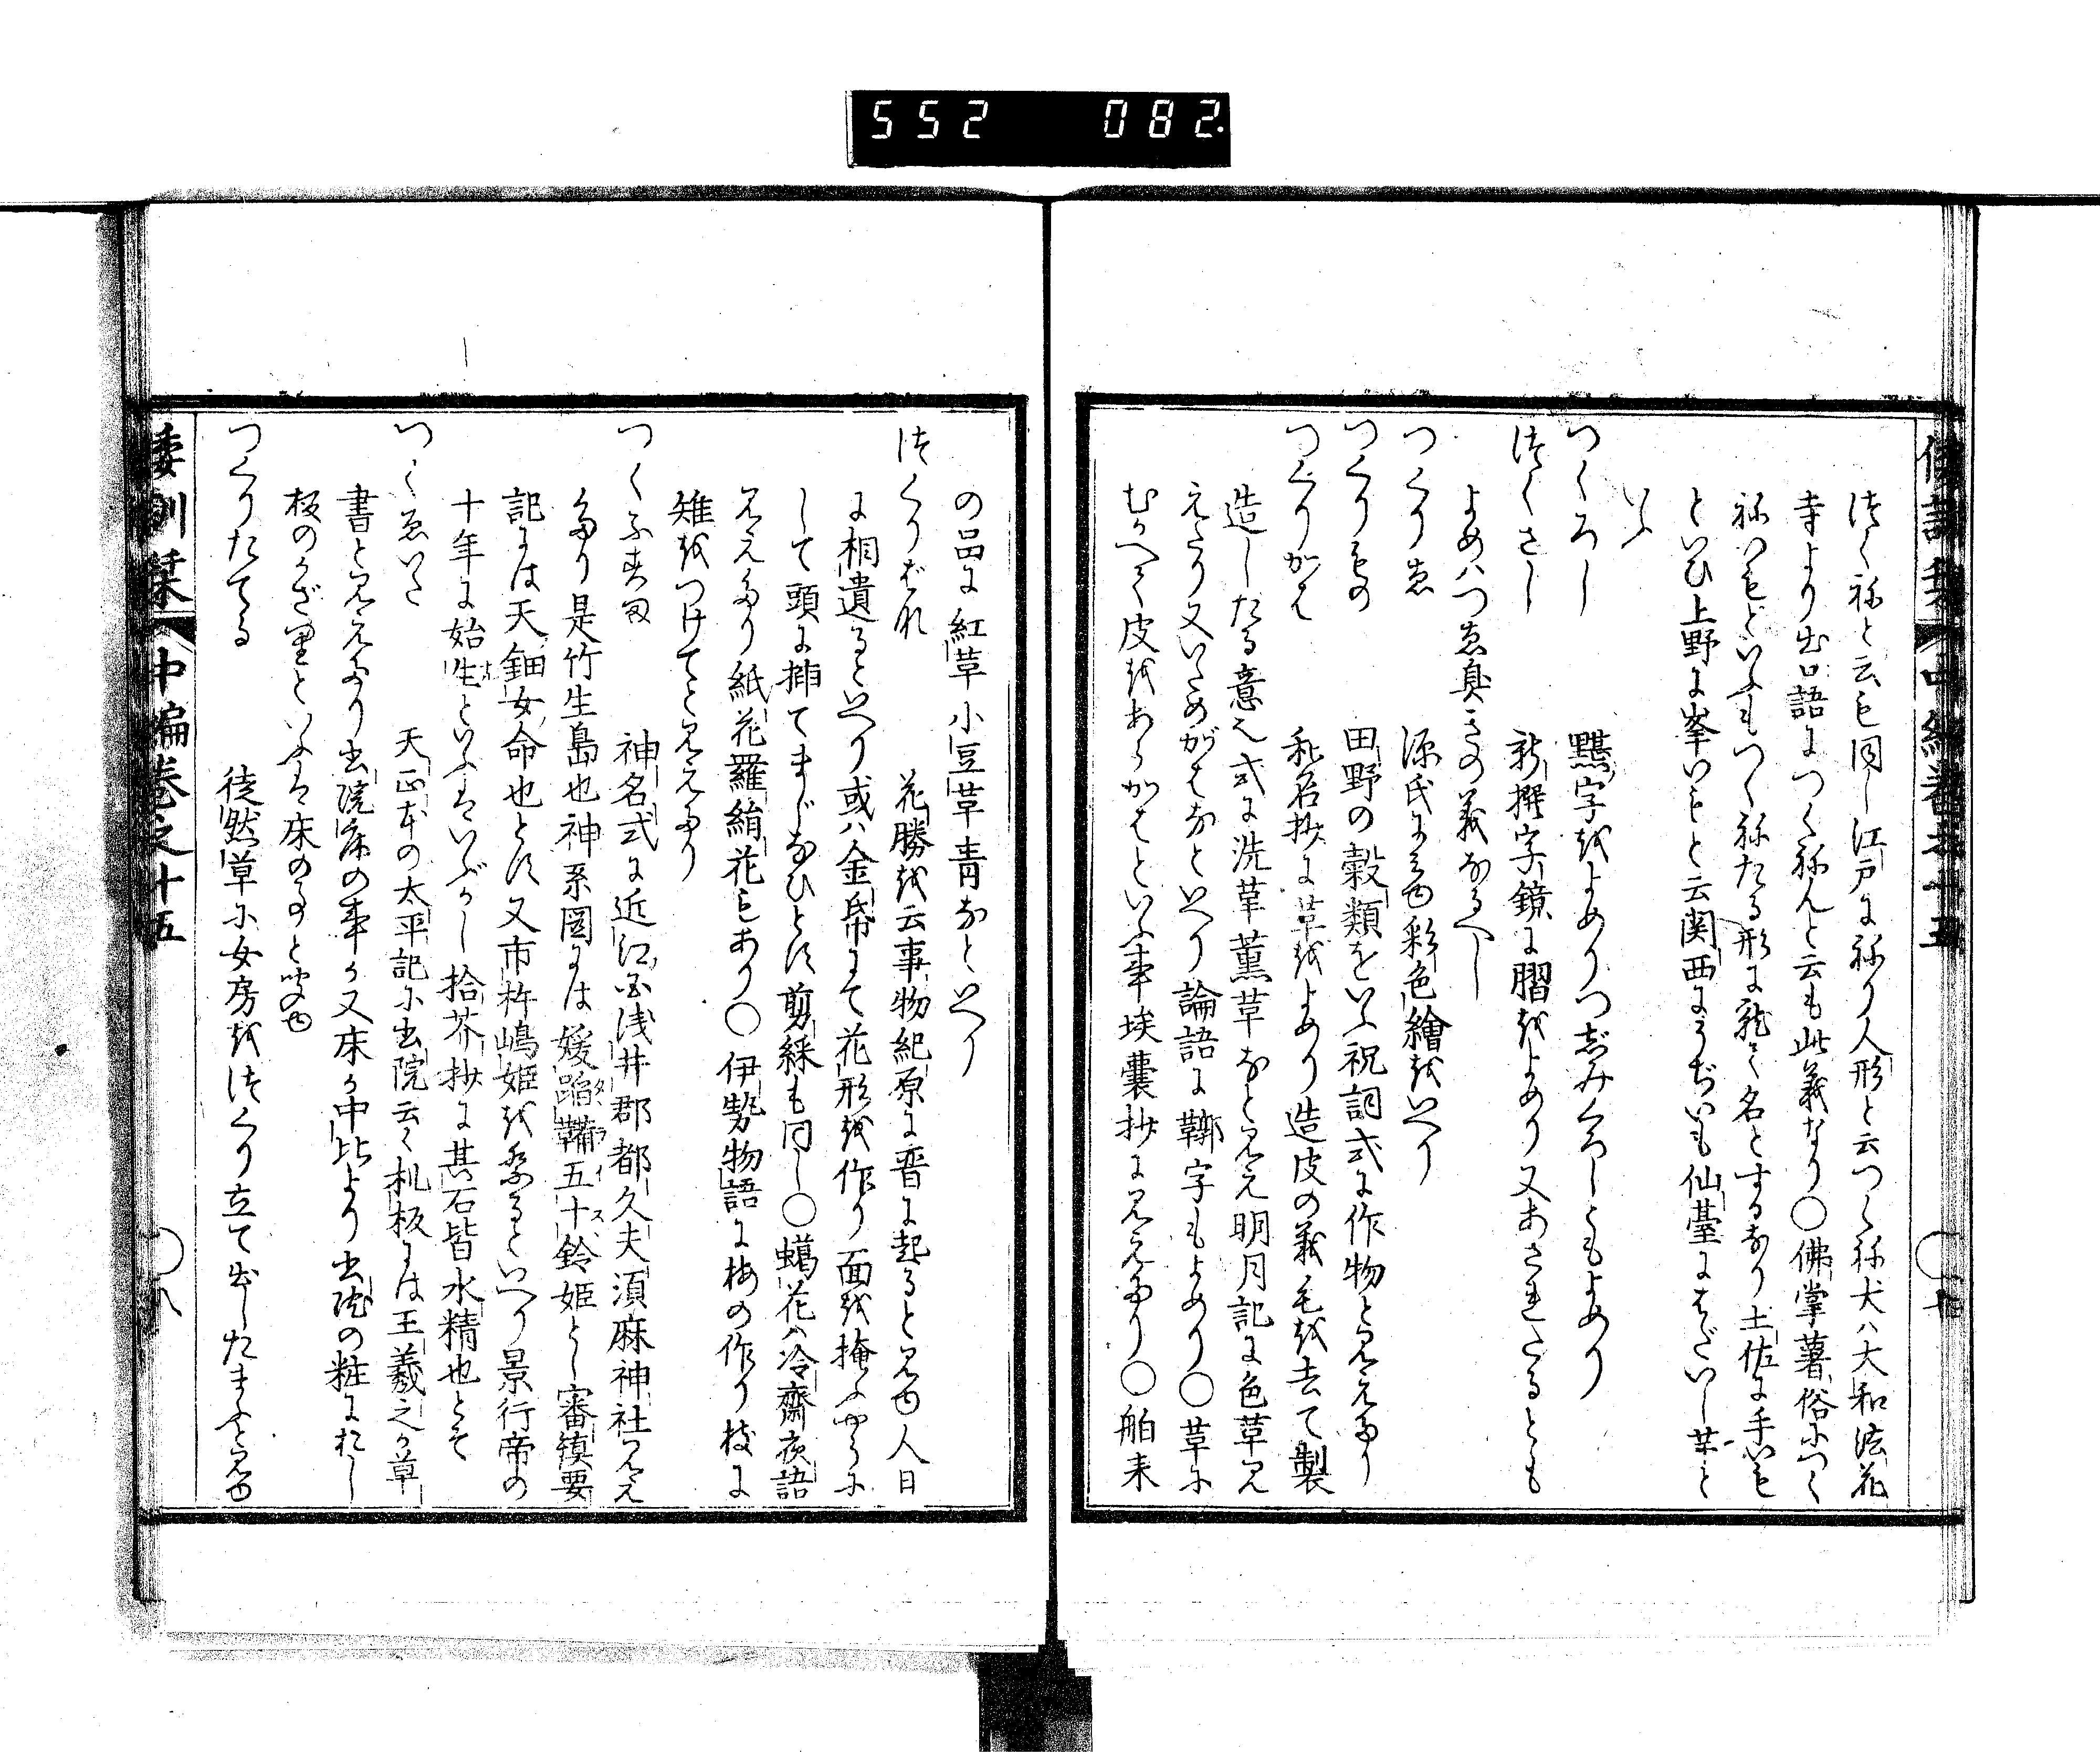 552 082.
倭訓栞 中編巻之十五
つくねと云も同し江戸にねり人形と云つくね犬ハ大和法花
寺より出口語につくねんと云も此義なり○佛掌薯俗につく
ねいもといふもつくねたる形に就て名とするなり土佐に手いも
といひ上野に峯いもと云関西にうぢいも仙臺にはだいし芋と
いふ
つくろし 黶字をよめりつゞみくろしともよめり
つくさし 新撰字鏡に䐑をよめり又あされたるとも
よめハつゑ臭さの義なるへし
つくりゑ 源氏に見ゆ彩色繪をいへり
つくりもの 田野の穀類をいふ祝詞式に作物と見えたり
つくりがは 和名抄に革をよめり造皮の義毛を去て製
造したる意也式に洗革薫革なと見え明月記に色革見
えたり又いためがはなといへり論語に鞹字もよめり○革に
むかへて皮をあらかはといふ事埃嚢抄に見えたり○舶来
の品に紅革小豆革青なといへり
つくりばな 花勝を云事物紀原に晋に起ると見ゆ人日
に相遺るといへり或ハ金帛にて花形を作り面を掩ふやうに
して頭に挿てまじなひとす剪綵も同し○蝎花ハ冷齋夜語
見えたり紙花羅絹花もあり○伊勢物語に梅の作り枝に
雉をつけてと見えたり
つくふすま 神名式に近江国浅井郡都久夫須麻神社見え
たり是竹生島也神系図には媛蹈鞴五十鈴姫とし審鎮要
記には天鈿女命也とす又市杵嶋姫を祭るといへり景行帝の
十年に始生といふはいぶかし拾芥抄に其石皆水精也とそ
つくゑいた 天正本の太平記に出院云々机板には王羲之か草
書と見えたり出院床の事か又床か中比より出院の粧にれし
板のかざ里といふは床のまと聞ゆ
つくりたてる 徒然草に女房をつくり立て出したまふと見ゆ
倭訓栞 中編巻之十五